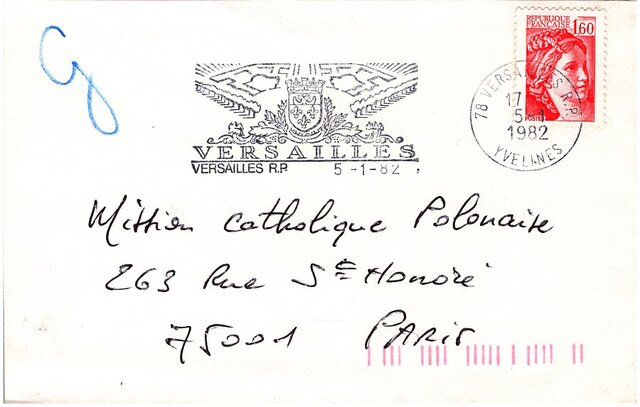 REPUBLIQUE
FRANÇAISE 1,60
POSTES
78 VERSAILLES R.P.
17
5-1
1982
YVELINES
VERSAILLES
VERSAILLES R.P. 5-1-82
Mission Catholique Polonaise
263 Rue Sᵗᵉ Honoré
75001 PARIS